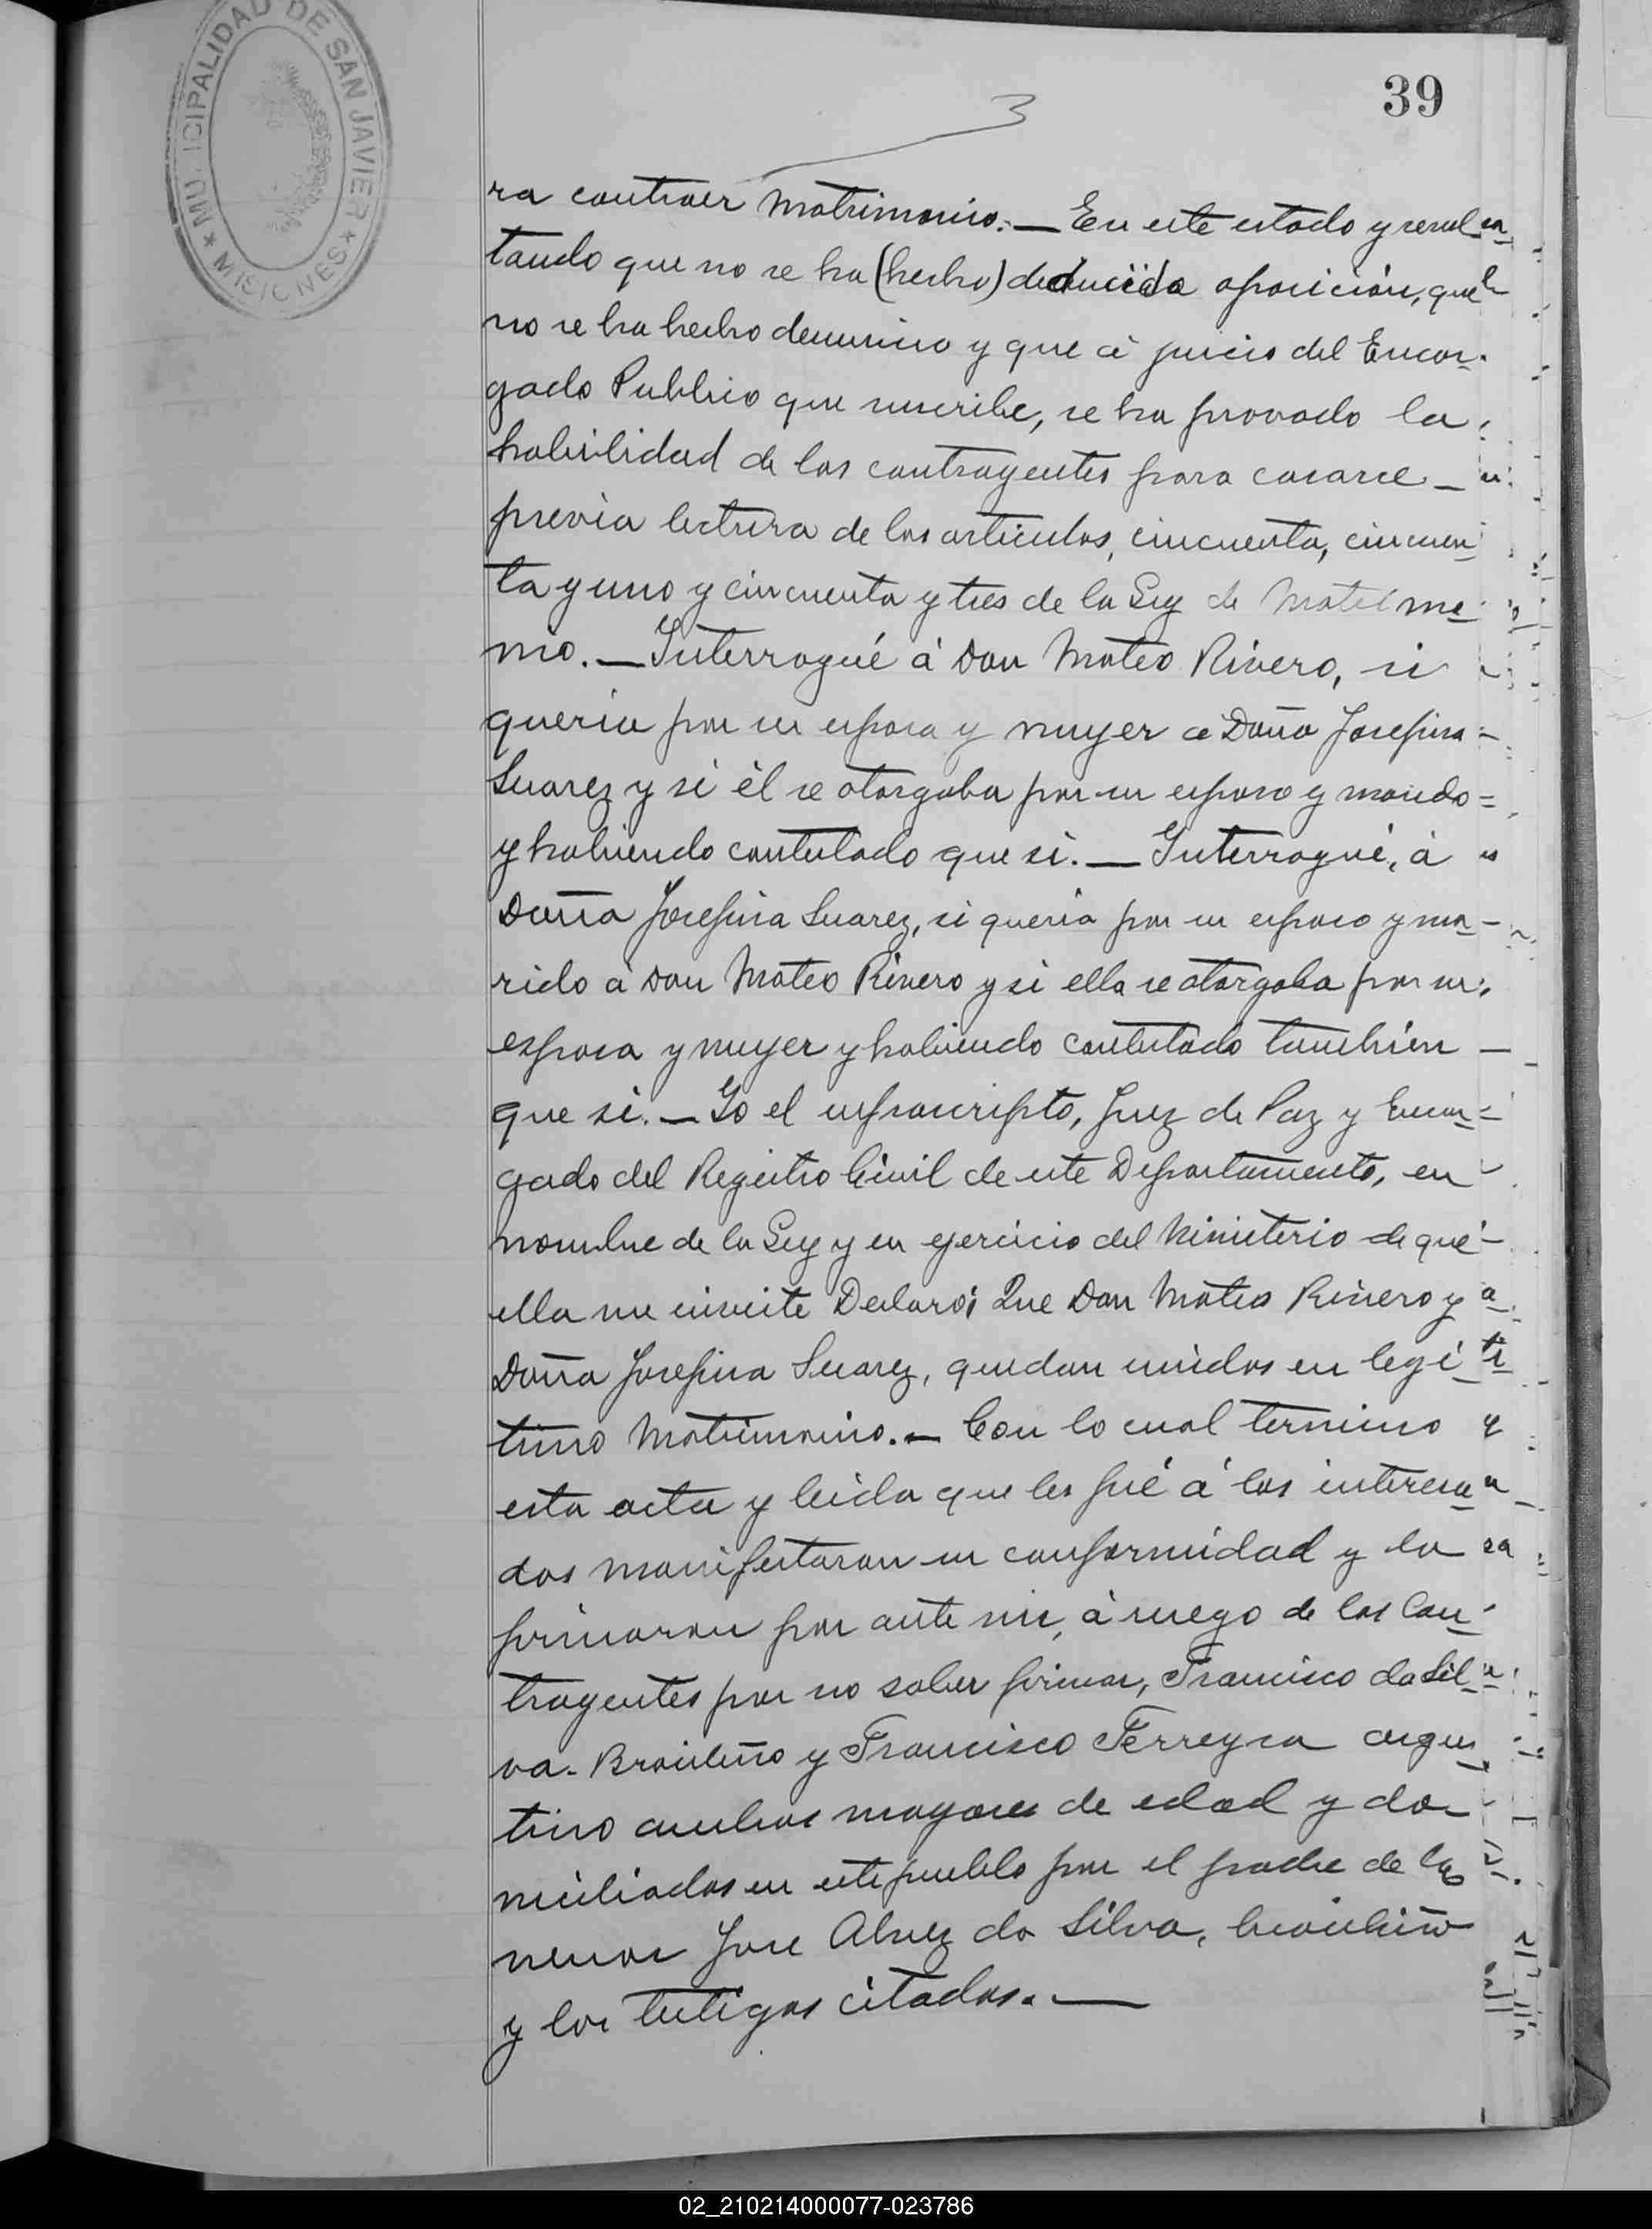 MUNICIPALIDAD DE SAN JAVIER
★ MISIONES ★
39
3
ra contraer Matrimonio.— En este estado y resul-
tando que no se ha (hecho) deducido oposición, que
no se ha hecho denuncia y que á juicio del Encar-
gado Publico que suscribe, se ha provado la
habilidad de los contrayentes para casarse —
previa lectura de los articulos, cincuenta, cincuen
ta y uno y cincuenta y tres de la Ley de Matrimo
nio.— Interrogué á Don Mateo Rivero, si
queria por su esposa y muyer a Doña Josefina
Suarez y si él se otorgaba por su esposo y marido
y habiendo contestado que si.— Interrogué, á
Doña Josefina Suarez, si queria por su esposo y ma-
rido a Don Mateo Rivero y si ella se otorgaba por su
esposa y muyer y habiendo contestado tambien —
que si.— Yo el infrascripto, Juez de Paz y Encar-
gado del Registro Civil de este Departamento, en
nombre de la Ley y en ejercicio del Ministerio de que
ella me inviste Declaro: Que Don Mateo Rivero y
Doña Josefina Suarez, quedan unidos en legi-
timo Matrimonio.— Con lo cual termino
esta acta y leida que les fué á los interesa
dos manifestaron su conformidad y la
firmaron por ante mi, á ruego de los Con-
trayentes por no saber firmar, Francisco da Sil-
va- Brasileño y Francisco Ferreyra argen
tino ambos mayores de edad y do-
miciliados en este pueblo por el padre de la
menor Jose Alvez da Silva, brasileño
y los testigos citados.—
02_210214000077-023786